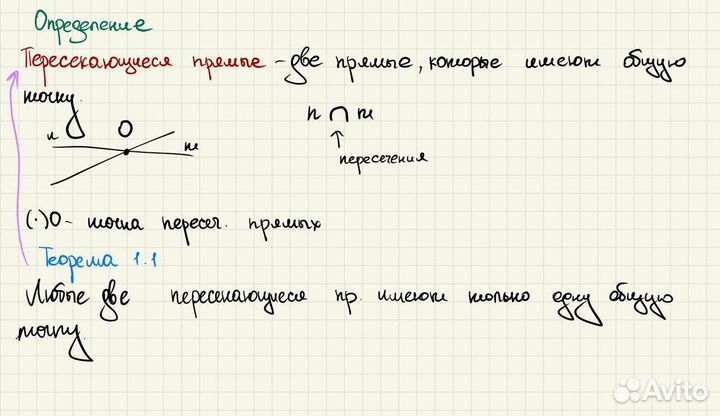 Определение
Пересекающиеся прямые - две прямые, которые имеют общую
точку.
n ∩ m
n O m
↑
пересечения
(·)O - точка пересеч. прямых
Теорема 1.1
Любые две пересекающиеся пр. имеют только одну общую
точку.
Avito